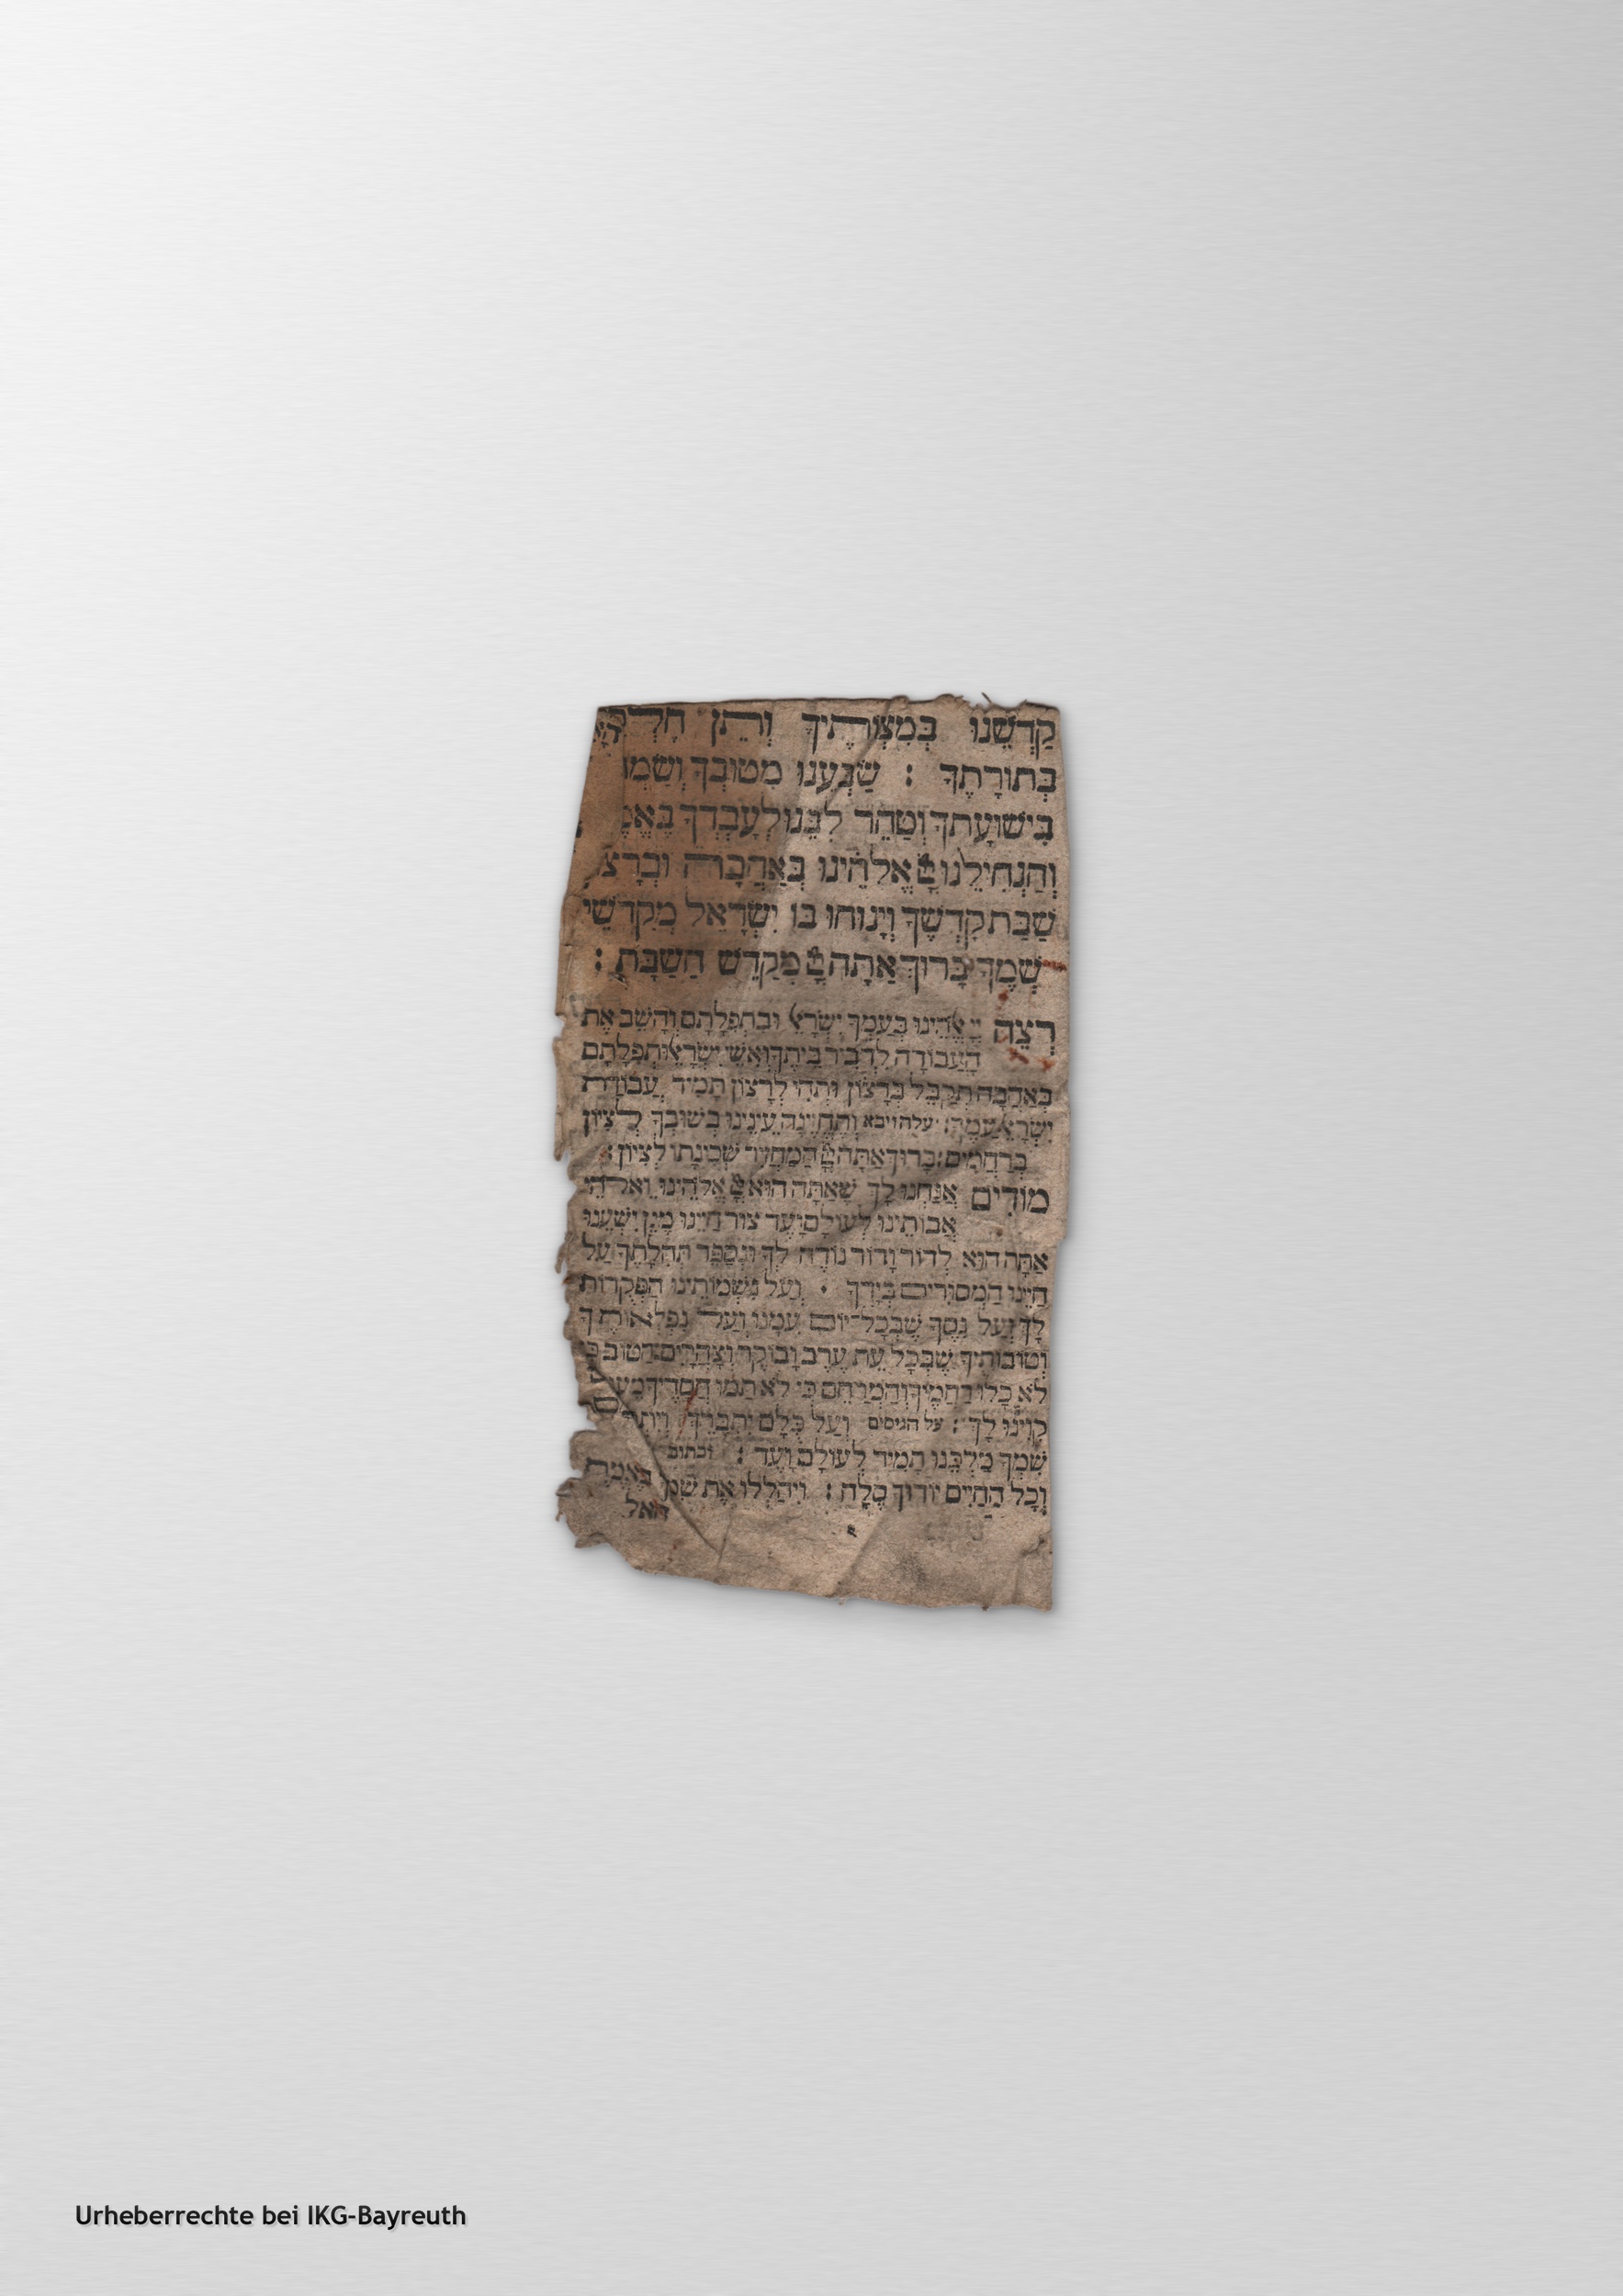 קַדְּשֵׁנוּ בְּמִצְוֹתֶיךָ וְתֵן חֶלְקֵ
בְּתוֹרָתֶךָ : שַׂבְּעֵנוּ מִטּוּבְךָ וְשַׂמְ
בִּישׁוּעָתֶךָ וְטַהֵר לִבֵּנוּ לְעָבְדְּךָ בֶּאֱמֶ
וְהַנְחִילֵנוּ אֱלֹהֵינוּ בְּאַהֲבָה וּבְרָצ
שַׁבַּת קָדְשֶׁךָ וְיָנוּחוּ בוֹ יִשְׂרָאֵל מְקַדְּשֵׁי
שְׁמֶךָ בָּרוּךְ אַתָּה מְקַדֵּשׁ הַשַּׁבָּת :
רְצֵה יְיָ אֱלֹהֵינוּ בְּעַמְּךָ יִשְׂרָאֵל וּבִתְפִלָּתָם וְהָשֵׁב אֶת
הָעֲבוֹדָה לִדְבִיר בֵּיתֶךָ וְאִשֵּׁי יִשְׂרָאֵל וּתְפִלָּתָם
בְּאַהֲבָה תְקַבֵּל בְּרָצוֹן וּתְהִי לְרָצוֹן תָּמִיד עֲבוֹדַת
יִשְׂרָאֵל עַמֶּךָ : יעלה ויבא וְתֶחֱזֶינָה עֵינֵינוּ בְּשׁוּבְךָ לְצִיּוֹן
בְּרַחֲמִים : בָּרוּךְ אַתָּה הַמַּחֲזִיר שְׁכִינָתוֹ לְצִיּוֹן :
מוֹדִים אֲנַחְנוּ לָךְ שָׁאַתָּה הוּא אֱלֹהֵינוּ וֵאלֹהֵי
אֲבוֹתֵינוּ לְעוֹלָם וָעֶד צוּר חַיֵּינוּ מָגֵן יִשְׁעֵנוּ
אַתָּה הוּא לְדוֹר וָדוֹר נוֹדֶה לְּךָ וּנְסַפֵּר תְּהִלָּתֶךָ עַל
חַיֵּינוּ הַמְּסוּרִים בְּיָדֶךָ · וְעַל נִשְׁמוֹתֵינוּ הַפְּקֻדוֹת
לָךְ וְעַל נִסֶּיךָ שֶׁבְּכָל־יוֹם עִמָּנוּ וְעַל נִפְלְאוֹתֶיךָ
וְטוֹבוֹתֶיךָ שֶׁבְּכָל עֵת עֶרֶב וָבוֹקֶר וְצָהֳרָיִם : הַטּוֹב כִּ
לֹא כָלוּ רַחֲמֶיךָ וְהַמְרַחֵם כִּי לֹא תַמּוּ חֲסָדֶיךָ מֵעוֹ
קִוִּינוּ לָךְ : על הניסים וְעַל כֻּלָּם יִתְבָּרַךְ וְיִתְר
שִׁמְךָ מַלְכֵּנוּ תָּמִיד לְעוֹלָם וָעֶד : וכתוב
וְכָל הַחַיִּים יוֹדוּךָ סֶּלָה : וִיהַלְלוּ אֶת שִׁמְ בֶּאֱמֶת
הָאֵל
Urheberrechte bei IKG-Bayreuth